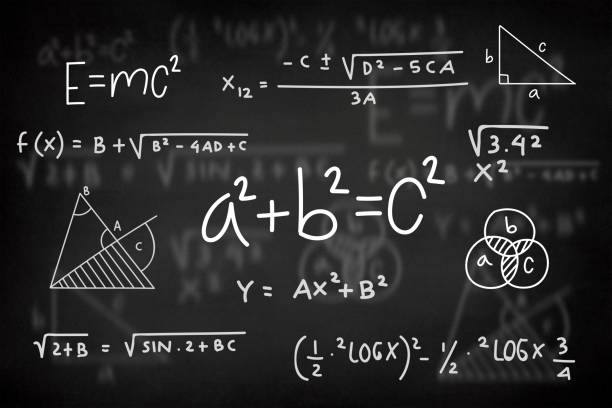 E=mc²
X₁₂ = (-C ± √(D² - 5CA)) / 3A
b c
a
f(x) = B+√(B² - 4AD+C)
√3.42
X²
B
A
C
a²+b²=c²
b
a c
Y= AX²+B²
√(2+B) = √(SIN.2+BC)
(1/2 · ²LOGX)² - 1/2 · ²LOGX 3/4